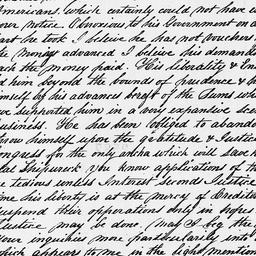 Americans! which certainly could not have
your notice. Obnoxious to his Government on a
part he took I beleive he has not vouchers
the money advanced I beleive his demands
each the money paid. His liberality & En
d him beyond the bounds of prudence & h
imself by his advanced draft of the Sums wh
ve supported him in a very expansive scea
usiness. He has been obliged to abando
throw himself upon the gratitude & Justice
ongress for the only ancha which will save
tal Shipwreck you know applications of th
re tedious unless Interest seconds Justice
me his liberty is at the mercy of Creditor
uspend their opperations only in hopes
Justice may be done. (may I beg the
your inquiries more particularly into
which appears to me in the light mention